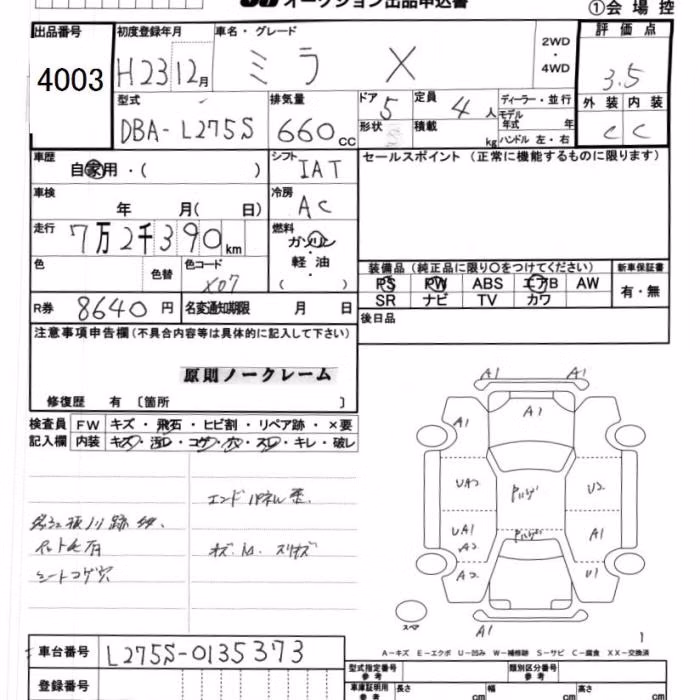 オークション出品申込書
①会場控
出品番号
4003
初度登録年月
H23 12月
車名・グレード
ミラ X
2WD
・
4WD
評価点
3.5
型式
DBA-L275S
排気量
660cc
ドア
5
定員
4人
形状
積載
kg
ディーラー・並行
モデル年式 年
ハンドル 左・右
外装 内装
C C
車歴
自家用・( )
シフト
IAT
セールスポイント(正常に機能するものに限ります)
車検
年 月( 日)
冷房
AC
走行
7万2千390km
燃料
ガソリン
・
軽油
・
( )
色
色替
色コード
X07
装備品(純正品に限り○をつけてください)
新車保証書
PS PW ABS エアB AW
SR ナビ TV カワ
有・無
R券 8640円
名変通知期限 月 日
後日品
注意事項申告欄(不具合内容等は具体的に記入して下さい)
原則ノークレーム
修復歴 有 〔箇所 〕
検査員
記入欄
FW キズ・飛石・ヒビ割・リペア跡・×要
内装 キズ・汚レ・コゲ・穴・スレ・キレ・破レ
エンドパネル歪.
シートコゲ穴
A1 A1
A1 A1
UA2 U2
UA1 A1
A2
A2 U1
A1
スペア
1
A-キズ E-エクボ U-凹み W-補修跡 S-サビ C-腐食 XX-交換済
車台番号
L275S-0135373
登録番号
型式指定番号
参考
類別区分番号
参考
車庫証明用
参考
長さ cm
幅 cm
高さ cm